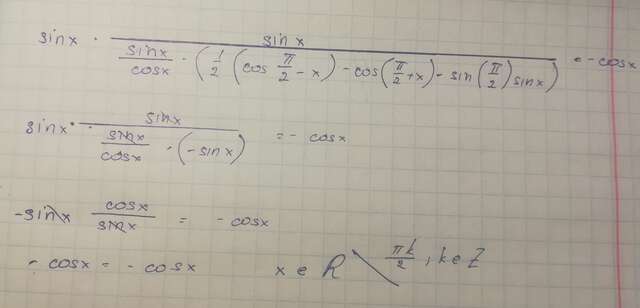 sinx · \frac{sinx}{\frac{sinx}{cosx} · (\frac{1}{2} (cos \frac{π}{2} - x) - cos(\frac{π}{2} + x) - sin(\frac{π}{2}) sinx)} = - cosx
sinx · \frac{sinx}{\frac{sinx}{cosx} · (-sinx)} = - cosx
-sinx \frac{cosx}{sinx} = - cosx
- cosx = - cosx x ∈ R \ \frac{πk}{2}, k ∈ Z